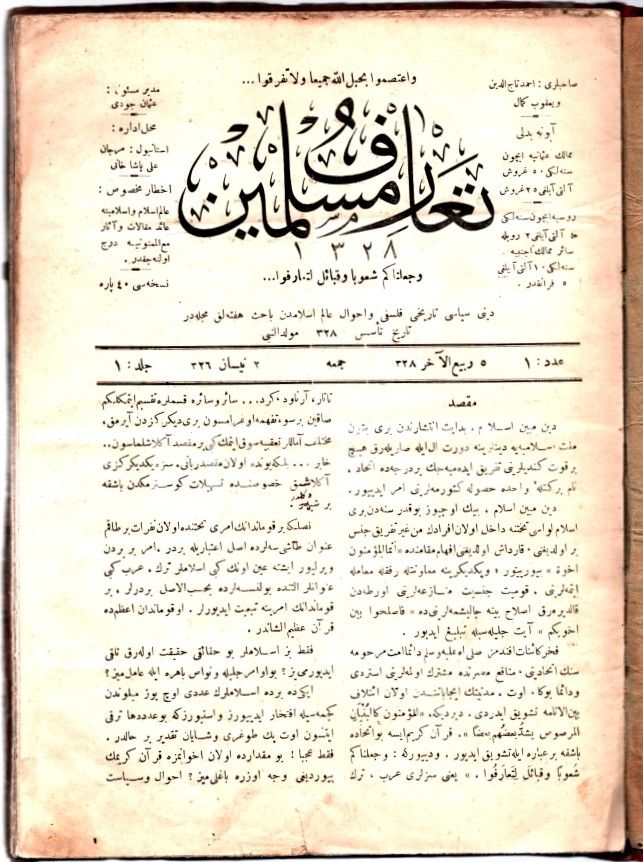 واعتصموا بحبل الله جميعا ولا تفرقوا ...
صاحبلری : احمد تاج الدین
و یعقوب کمال
آبونه بدلی
ممالك عثمانیه ایچون
سنه‌لکی ۵۰ غروش
آلتی آیلغی ۲۵ غروش
روسیه ایچون سنه‌لکی
آلتی آیلغی ۲ روبله
سائر ممالك اجنبیه
سنه‌لکی ۱۰ آلتی آیلغی
۵ فرانقدر .
تعارف مسلمین
۱۳۲۸
وجعلناکم شعوبا وقبائل لتعارفوا...
مدیر مسئول :
عثمان جودی
محل اداره :
استانبول : مرجان
علی پاشا خانی
اخطار مخصوص :
عالم اسلام واسلامیته
عائد مقالات وآثار
مع الممنونیه درج
اولنه‌جقدر .
نسخه‌سی ۴۰ پاره
دینی سیاسی تاریخی فلسفی واحوال عالم اسلامدن باحث هفته‌لق مجله‌در
تاریخ تأسیس ۳۲۸ مولد النبی
عدد : ۱ ۵ ربیع الآخر ۳۲۸ جمعه ۲ نیسان ۳۲۶ جلد : ۱
مقصد
دین مبین اسلام ، بدایت انتشارندن بری بتون
ملت اسلامیه‌یه دینلرینه دورت ال ایله صاریله‌رق هیچ
بر قوت کندیلرینی تفریق ایده‌میه‌جك بر درجه‌ده اتحاد ،
تام برکتله واحده حصوله کتورمه‌لرینی امر ایدییور .
دین مبین اسلام ، بیك اوچیوز بو قدر سنه‌دن بری
اسلام لواسی تحتنه داخل اولان افرادك من غیر تفریق جنس
بر اولدیغنی ، قارداش اولدیغنی افهام مقامنده «انما المؤمنون
اخوة » بیورییور ؛ ویکدیکرینه معاونتله رفقله معامله
ایتمه‌لرینی ، قومیت جنسیت منازعه‌لرینی اورطه‌دن
قالدیره‌رق اصلاح بینه چالیشمه‌لرینی‌ده « فاصلحوا بین
اخویکم » آیت جلیله‌سیله تبلیغ ایدیور .
فخر کائنات افندمز صلی الله علیه وسلم دائما امت مرحومه
سنك اتحادینی ، منافع مشترك اوله‌لرینی استردی
ودائما بوکا ، اوت . مدنیتك ایجاباتندن اولان ائتلاف
بین الانامه تشویق ایدردی . دیردیکه « المؤمنون کالبُنْیَانِ
المرصوص یشدّ بعضُهم بعضا » . قرآن کریم ایسه بو اتحاده
باشقه بر عباره ایله تشویق ایدیور . ودیبورکه : وجعلناکم
شعوبًا وقبائل لِتَعارفوا . » یعنی سزلری عرب ، ترك
تاتار ، آرناود ، کرد... سائر وسائره قسملره تقسیم ایتمکلکم
صاقین بر سوء تفهمه اوغرامسون بری دیکرکزدن آیرمق ،
مختلف آماللر تعقیبه سوق ایتمك کبی بر مقصد آکلاشلماسون..
خایر ... بلکه بونده اولان مقصد ربانی ، سزه یکدیکرکزی
آکلاشمق خصوصنده تسهیلات کوسترمکدن باشقه
بر شی دکلدر .
نصلکه بر قوماندانك امری تحتنده اولان نفرات بر طاقم
عنوان طاشیسه‌لرده اصل اعتباریله بردر ، امر بر بردن
ویرلیور ایشته عین اونك کبی اسلاملر ترك ، عرب کبی
عنوانلر التنده بولنسه‌لرده بحسب الاصل بردرلر ، بر
قوماندانك امرینه تبعیت ایدیورلر . او قوماندان اعظم‌ده
قرآن عظیم الشاندر .
فقط بز اسلاملر بو حقائقی حقیقت اوله‌رق تلقی
ایدیورمی‌یز ؟ بو اوامر جلیله ونواس باهره ایله عاملمی‌یز ؟
ایکی‌ده برده اسلاملرك عددی اوچ یوز میلوندن
کچمه‌سیله افتخار ایدییورز و استیورزکه بو عددها ترقی
ایتسون اوت پك طوغری وشایان تقدیر بر حالدر .
فقط عجبا ! بو مقدارده اولان اخوانمزه قرآن کریمك
بیوردیغی وجه اوزره باغلی‌میز ؟ احوال وسیاست